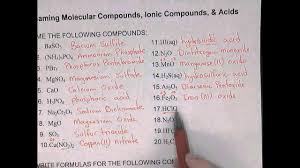 aming Molecular Compounds, Ionic Compounds, & Acids
ME THE FOLLOWING COMPOUNDS:
BaSO₃ Barium Sulfite
Ammonium Phosphate
PBr₅ Phosphorus Pentabromide
4. MgSO₄ Magnesium Sulfate
5. CaO Calcium Oxide
6. H₃PO₄ Phosphoric acid
7. Sodium Bicarbonate
8. MgO Magnesium Oxide
9. SO₃ Sulfur trioxide
10. Copper (II) nitrate
11. HI(aq) hydroiodic acid
12. N₂O
13. MnO Manganese (II) oxide
14. H₂S(aq) hydrosulfuric acid
15. Diarsenic Pentoxide
16. Fe₂O₃ Iron (III) oxide
17. HClO
18. N₂
19. H
20. H
WRITE FORMULAS FOR THE FOLLOWING COMP